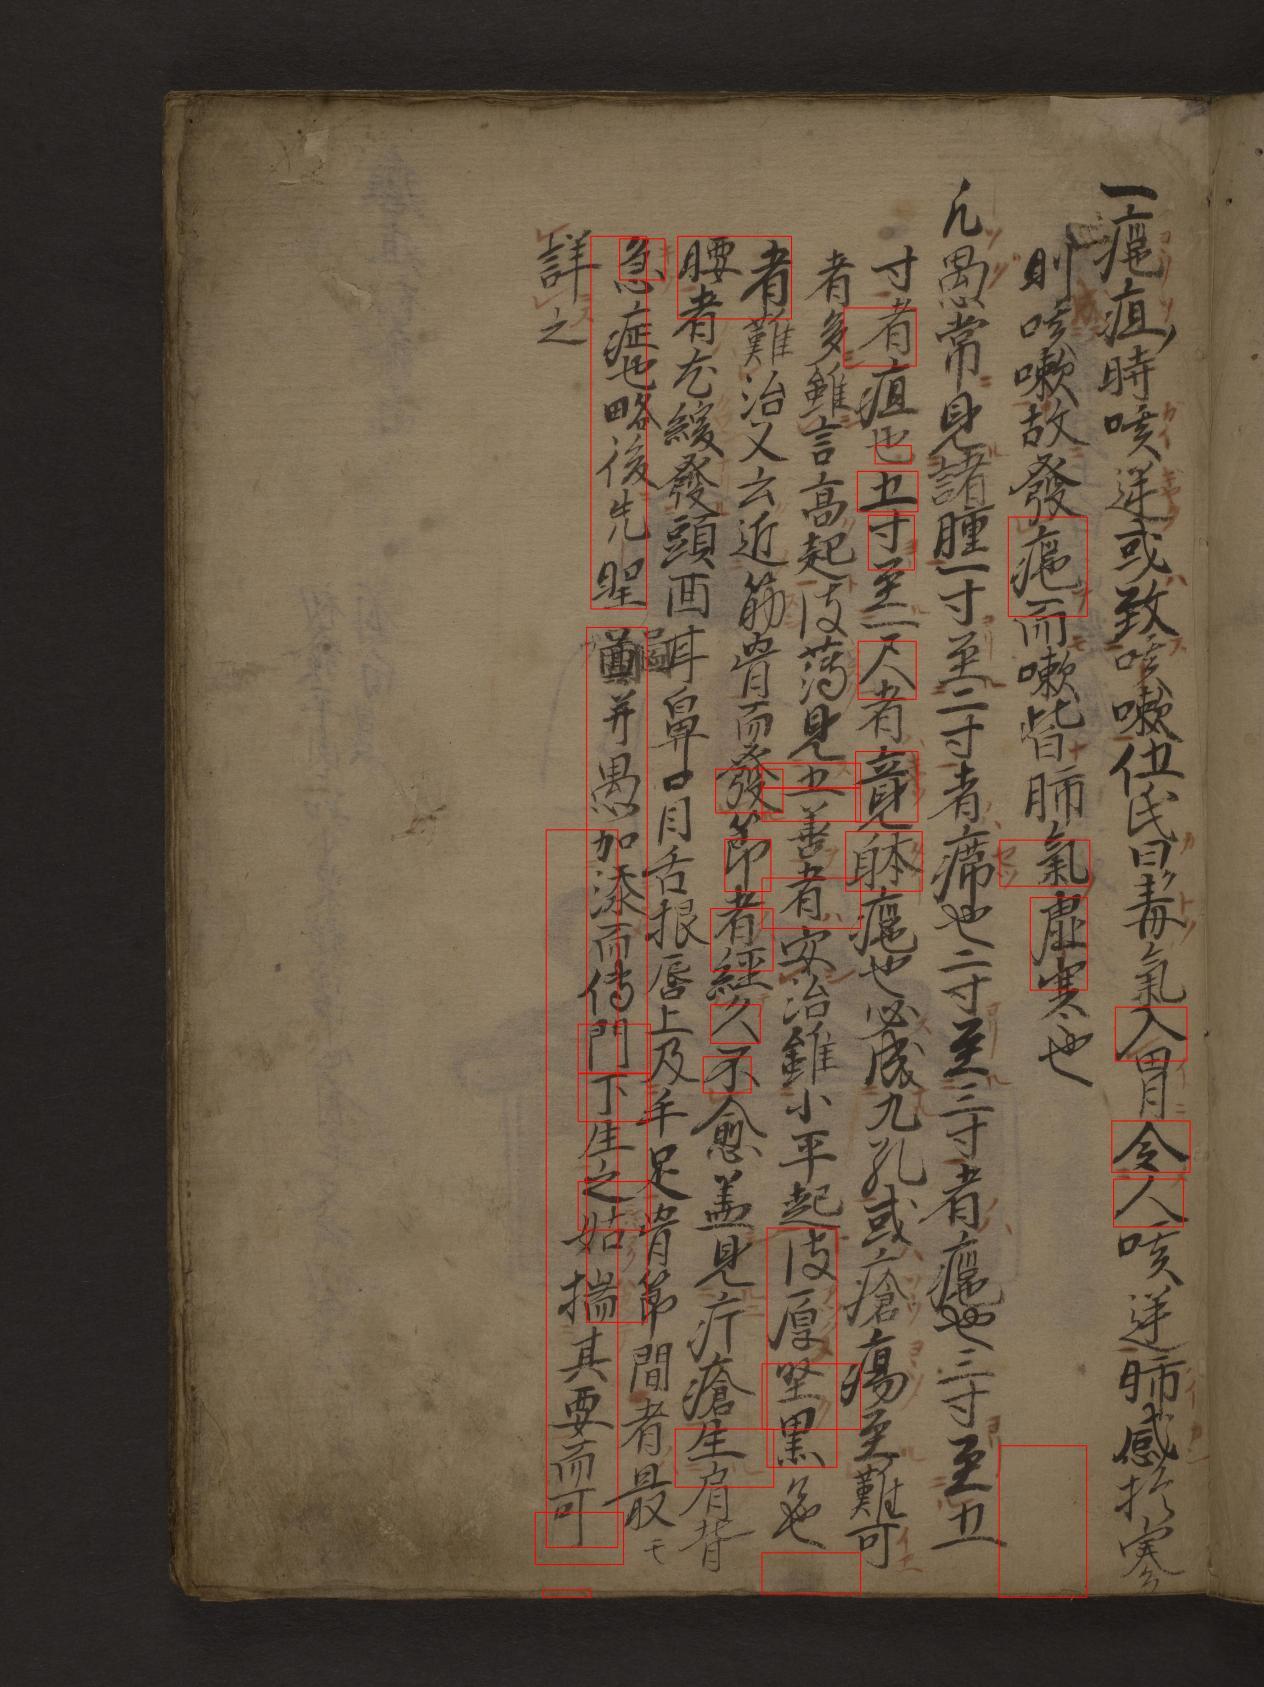 一癰疽時咳逆或致咳嗽伍氏曰毒氣入胃令人咳逆肺感於寒
則咳嗽故發癰而嗽皆肺氣虛寒也
凡愚常見諸腫一寸至二寸者癤也二寸至三寸者癰也三寸至五
寸者疽也五寸至一尺者竟躰癰也必成九孔或疔瘡瘍至難可
者多雖言高起皮薄見五善者安治雖小平起皮厚堅黒色
者難治又云近筋骨而發節者經久不愈盖見疔瘡生肩背
腰者尤緩發頭面耳鼻口目舌根唇上及手足骨節間者最
急症也略後先聖 并愚加添而傳門下生之姑揣其要而可
詳之